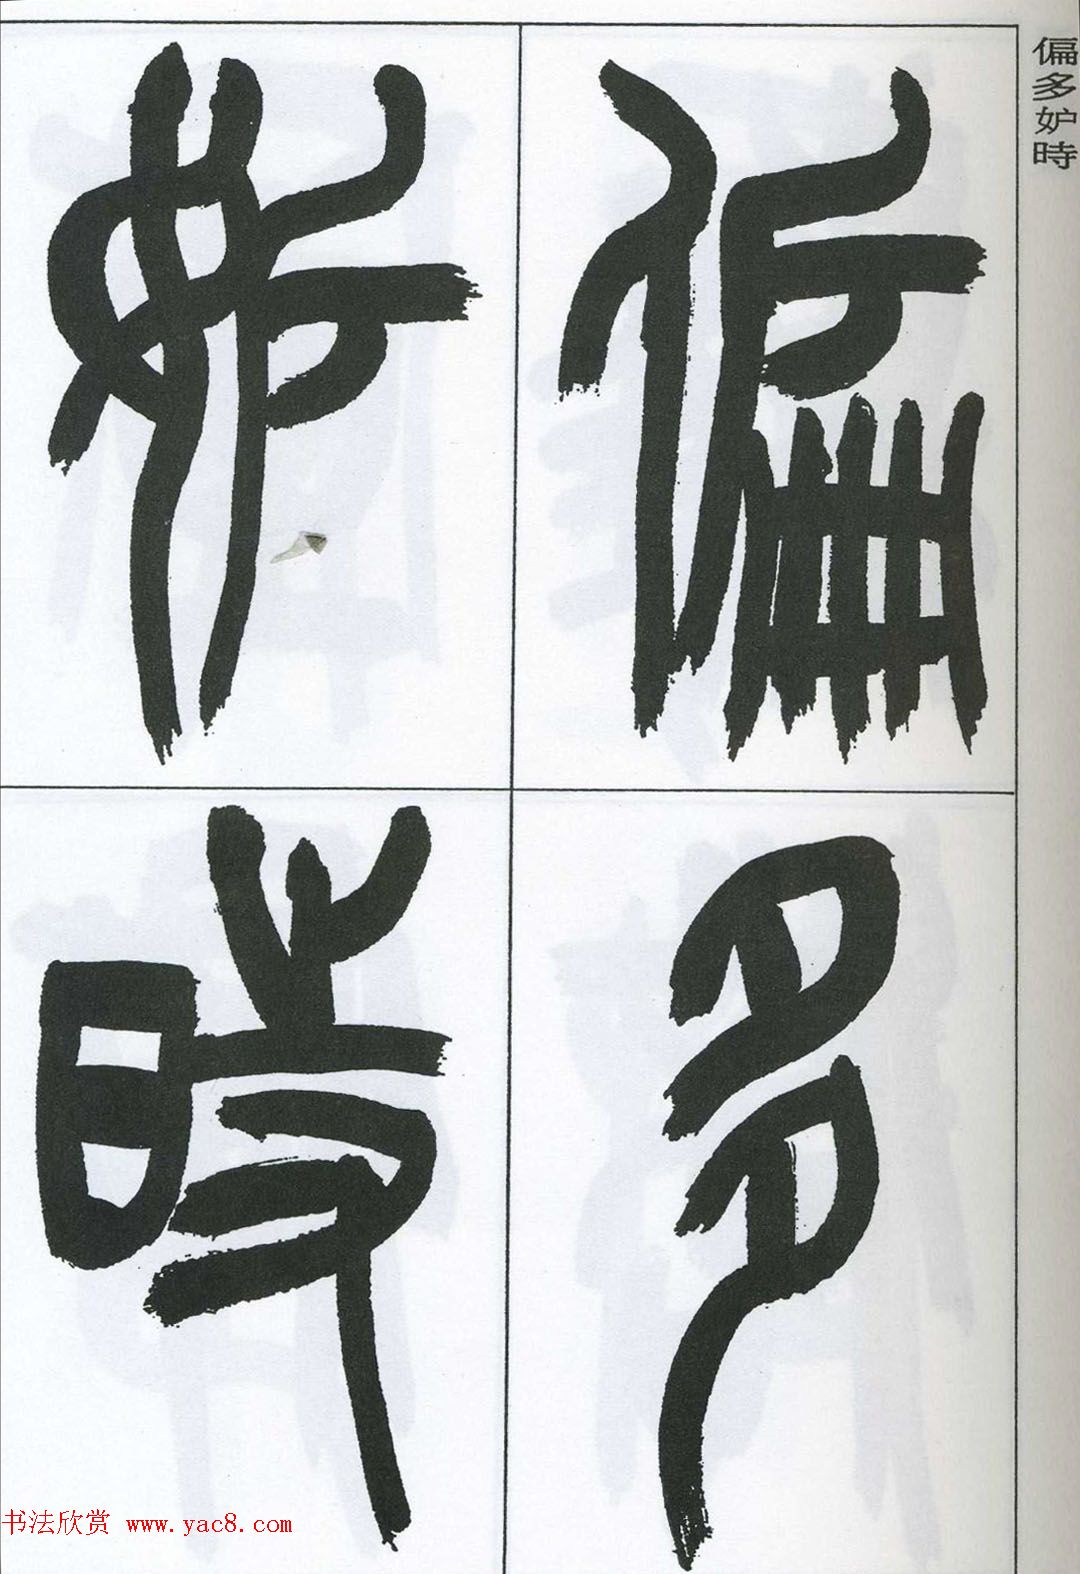 偏多妒時
偏多
妒時
书法欣赏 www.yac8.com